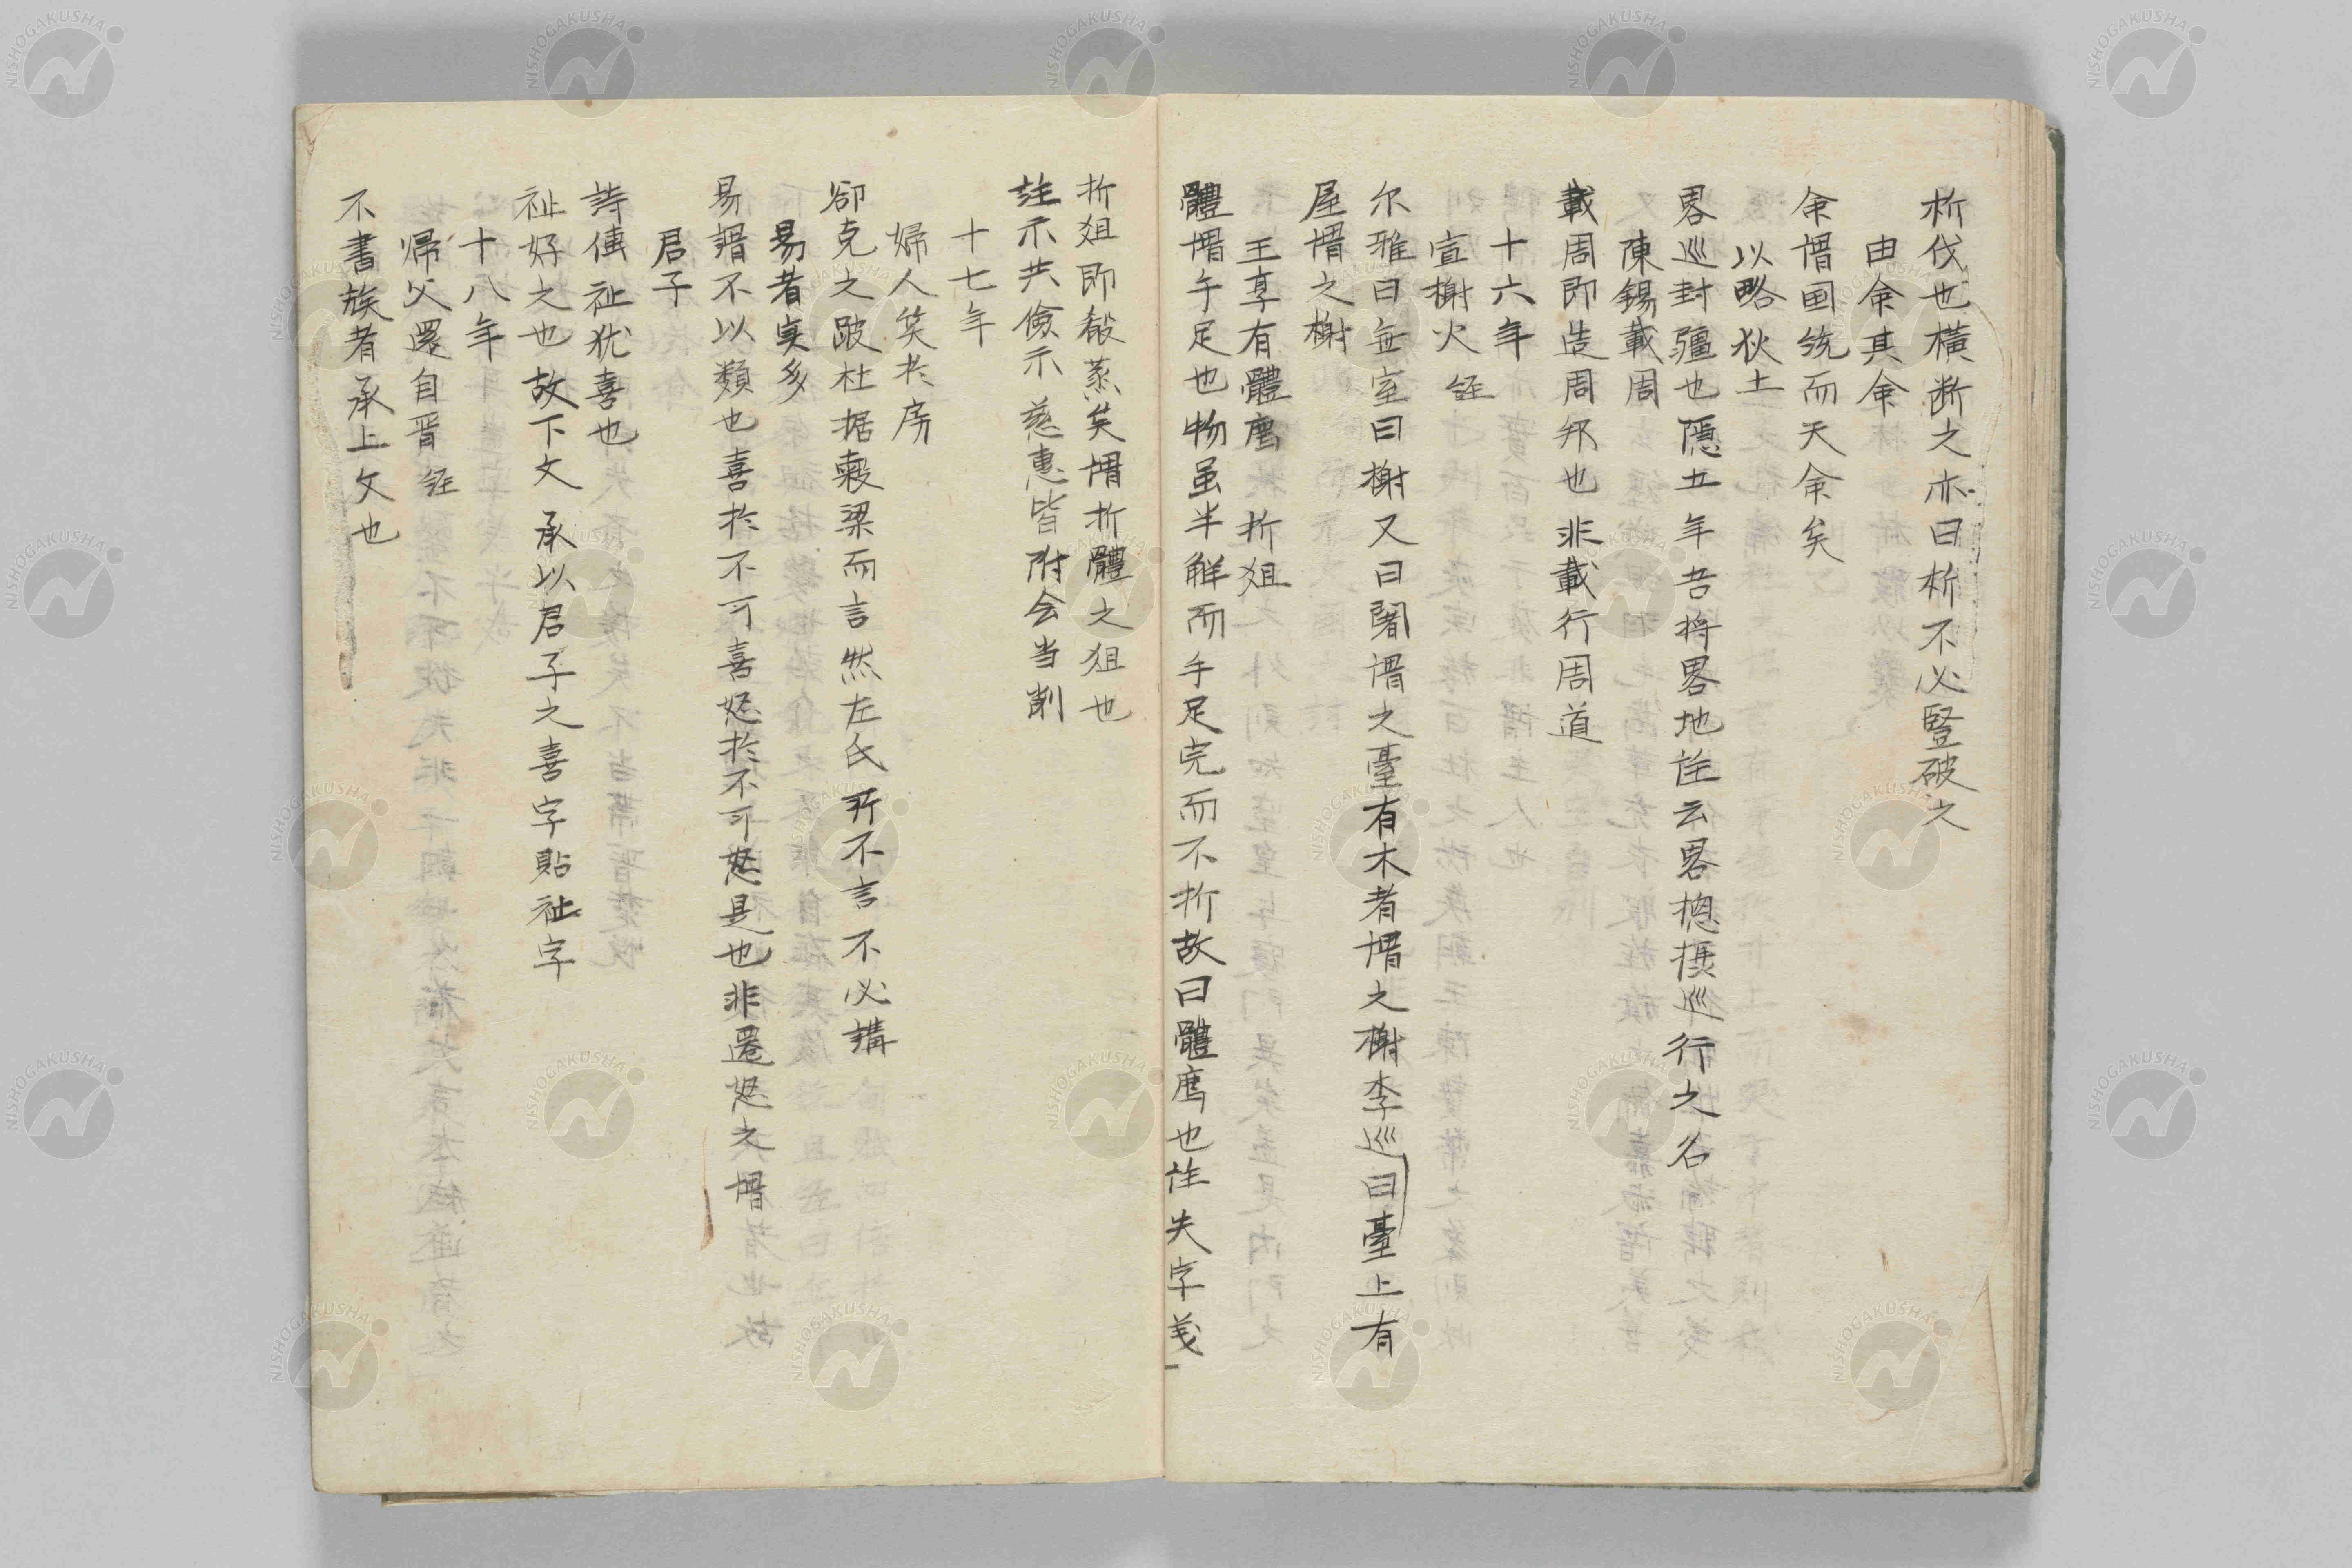 析伐也橫断之亦曰析不必豎破之
由余其余
余谓国统而天命矣
以略狄土
畧巡封疆也隱五年吾将畧地註云畧揔摄巡行之名
陳錫載周
載周即造周邦也非載行周道
十六年
宣榭火 経
尔雅曰無室曰榭又曰闍谓之臺有木者谓之榭李巡曰臺上有
屋谓之榭
王享有體薦 折俎
體谓手足也物虽半觧而手足完而不折故曰體薦也註失字義
折俎即殽蒸矣谓折體之俎也
註示共儉示慈惠皆附会当削
十七年
婦人笑於房
卻克之跛杜据穀梁而言然左氏所不言不必講
易者実多
易谓不以類也喜於不可喜怒於不可怒是也非遷怒之谓
君子
詩傳祉犹喜也
祉好之也故下文承以君子之喜字貼祉字
十八年
帰父還自晋 経
不書族者承上文也
NISHOGAKUSHA